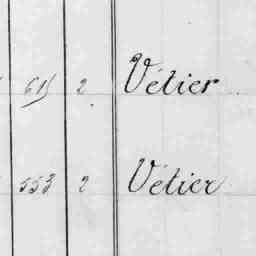 615 2 Vétier
553 2 Vétier